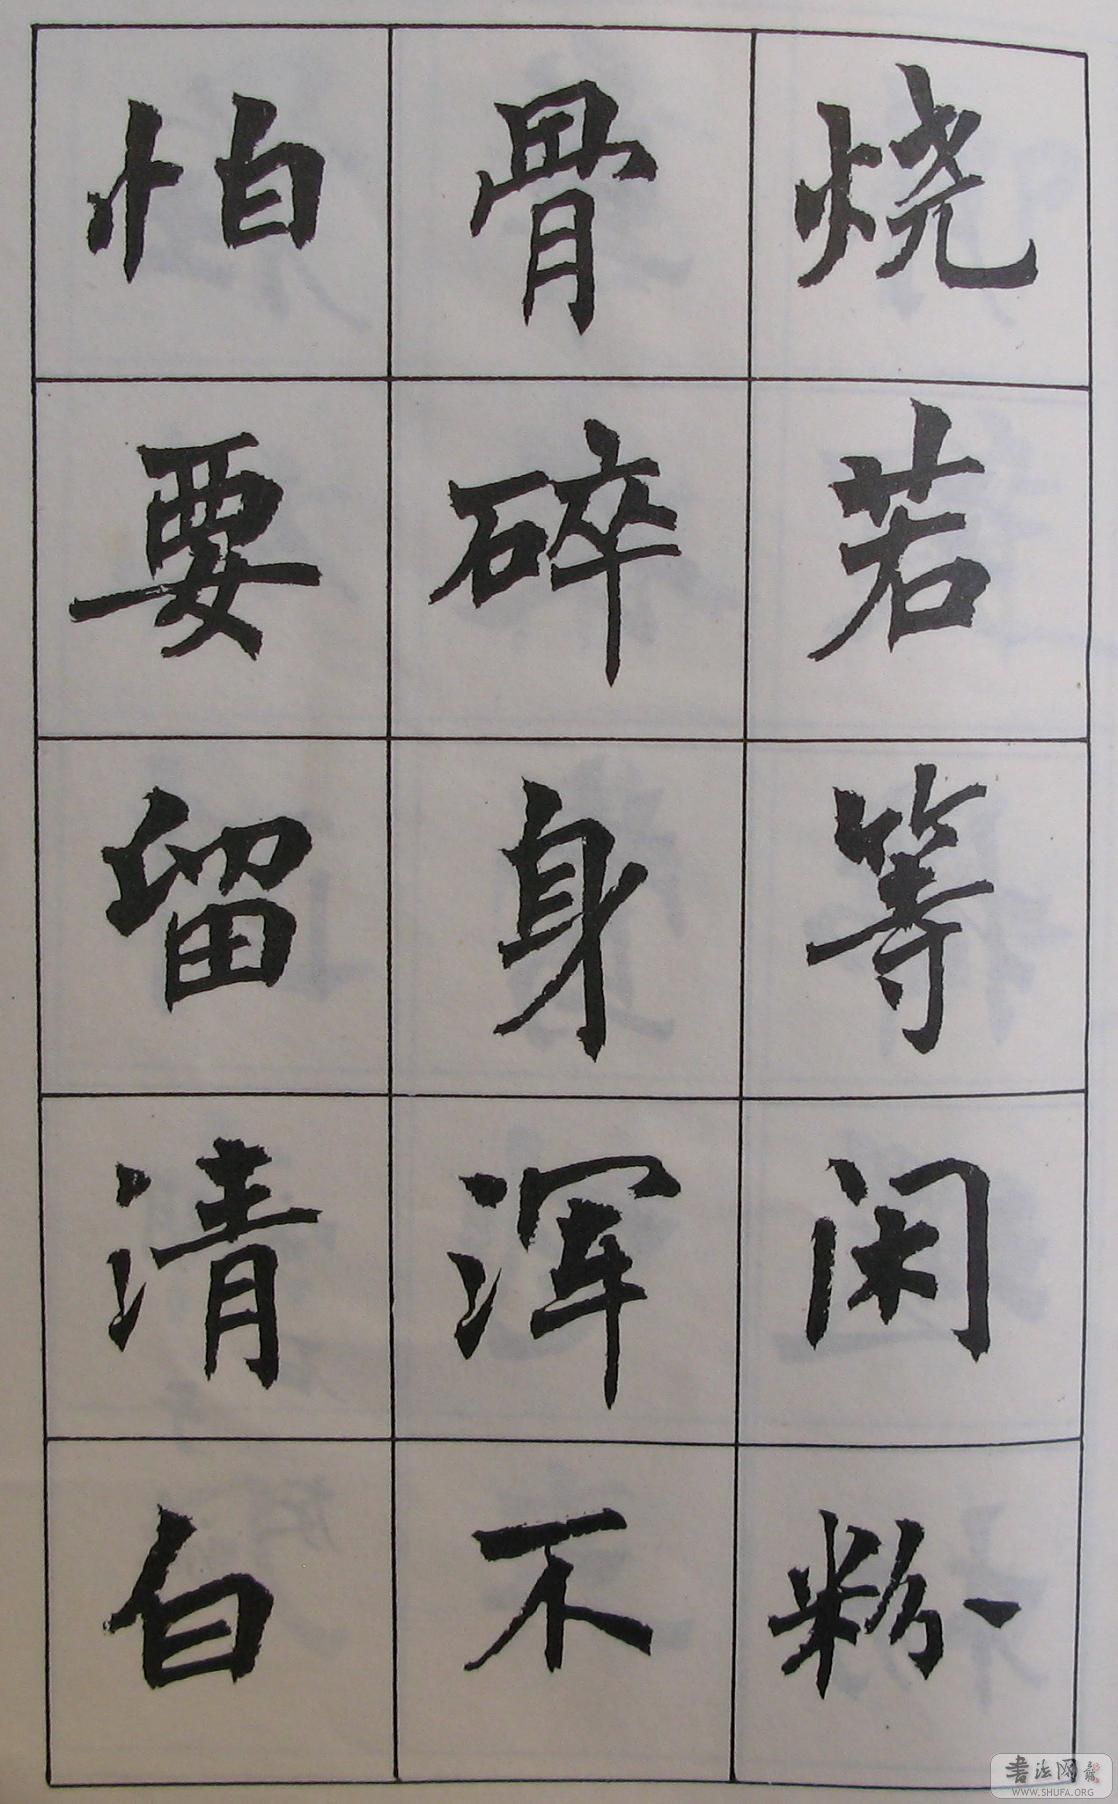 烧若等闲粉
骨碎身浑不
怕要留清白
书法网
WWW.SHUFA.ORG